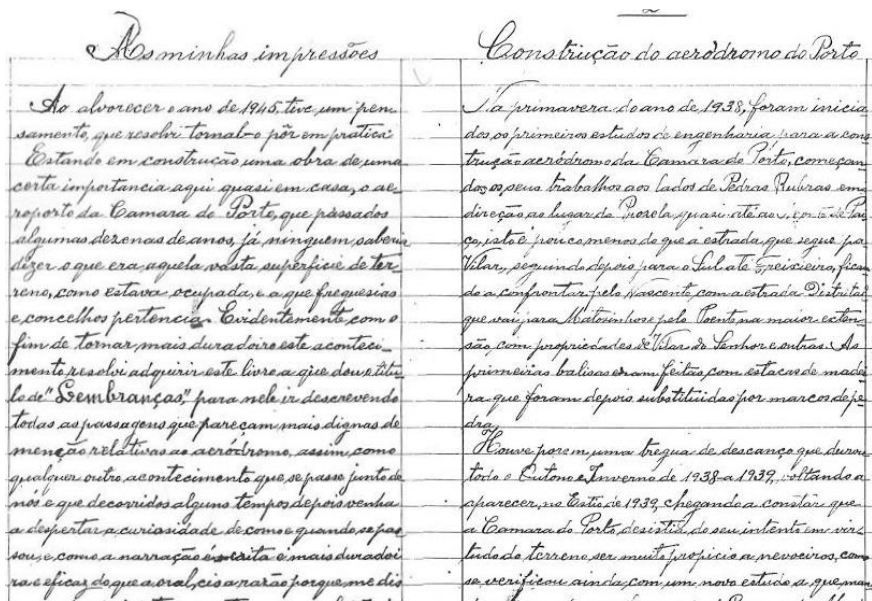 As minhas impressões
Ao alvorecer o ano de 1945, tive um pen
samento, que resolvi tornal-o pôr em pratica.
Estando em construção uma obra de uma
certa importancia aqui quasi em casa, o ae-
roporto da Camara do Porto, que passados
algumas dezenas de anos, já ninguem saberia
dizer o que era aquela vasta superficie de ter-
reno, como estava ocupada, e a que freguesias
e concelhos pertencia. Evidentemente, com o
fim de tornar mais duradoiro este aconteci-
mento, resolvi adquirir este livro, a que dou o titu-
lo de "Lembranças," para nele ir descrevendo
todas as passagens que pareçam mais dignas de
menção relativas ao aeródromo, assim, como
qualquer outro acontecimento que se passe junto de
nós e que decorridos alguns tempos depois venha
a despertar a curiosidade de como e quando se pas
sou, e, como a narração escrita é mais duradoi
ra e eficaz do que a oral, eis a razão porque me dis
Construção do aeródromo do Porto
Na primavera do ano de 1938, foram inicia
dos os primeiros estudos de engenharia para a cons
trução aeródromo da Camara do Porto, começan
do os seus trabalhos aos lados de Pedras Rubras em
direção ao lugar da Prozela, quasi até ao de
isto é, pouco menos do que a estrada, que segue pa
Vilar, seguindo depois para o Sul até Freixieiro, fican
do a confrontar pelo Nascente, com a estrada Distrital
que vai para Matosinhos e pelo Poente na maior exten
são, com propriedades de Vilar do Senhor e outras. As
primeiras balisas eram feitas, com estacas de madei
ra que foram depois substituidas por marcos de pe-
dra.
Houve porem, uma tregua de descanço que durou
todo o Outono e Inverno de 1938 a 1939, voltando a
aparecer, no Estio de 1939, chegando a constar que
a Camara do Porto, desistia do seu intento em vir-
tude do terreno ser muito propicio a nevoeiros, como
se verificou ainda, com um novo estudo a que man